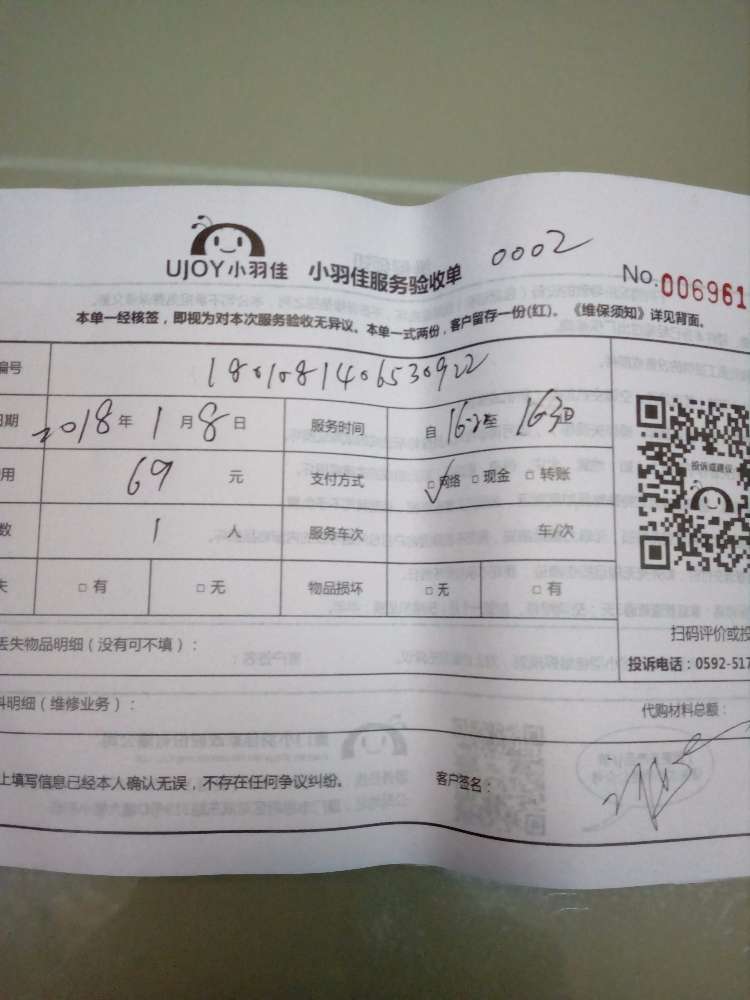 UJOY小羽佳 小羽佳服务验收单 0002
No.006961
本单一经核签，即视为对本次服务验收无异议。本单一式两份，客户留存一份(红)。《维保须知》详见背面。
编号 1801081406530922
日期 2018年1月8日 服务时间 自 至1630
用 69 元 支付方式 ☑网络 □现金 □转账
数 1 人 服务车次 车/次
失 □有 □无 物品损坏 □无 □有
投诉或建议
扫码评价或投
丢失物品明细（没有可不填）：
投诉电话：0592-517
料明细（维修业务）：
代购材料总额：
上填写信息已经本人确认无误，不存在任何争议纠纷。 客户签名：